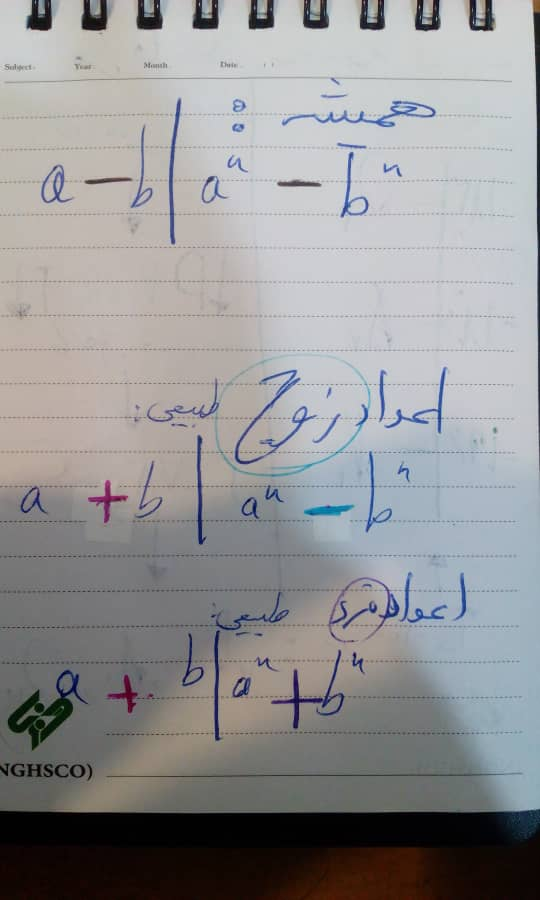 Subject. Year. Month. Date. / /
همیشه :
a - b | aⁿ - bⁿ
اعداد زوج طبیعی:
a + b | aⁿ - bⁿ
اعداد فرد طبیعی:
a + b | aⁿ + bⁿ
NGHSCO)